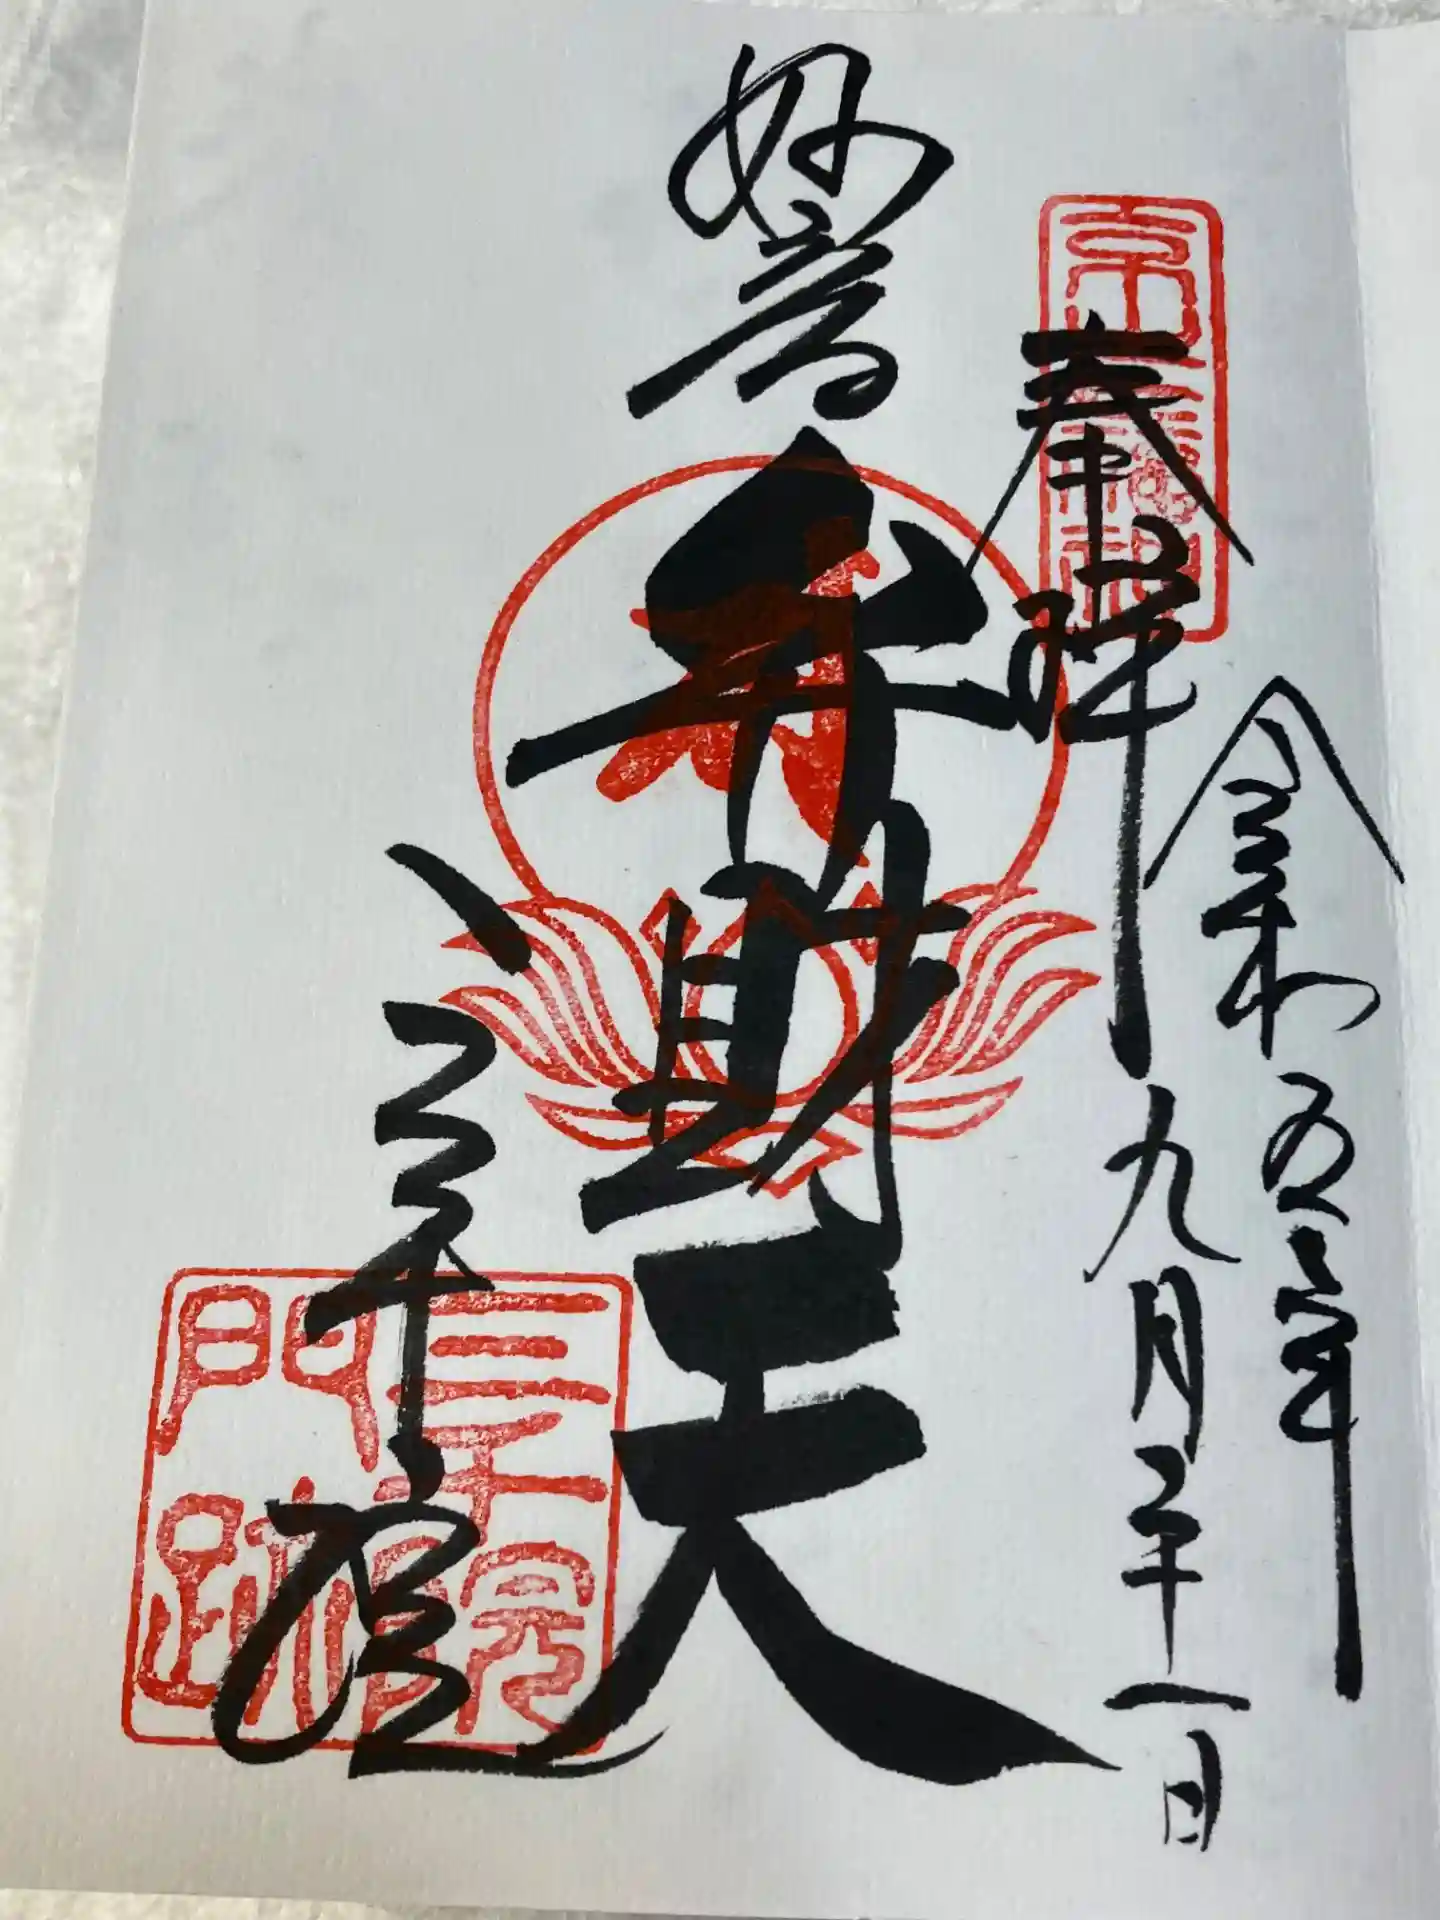 令和五年
九月二十一日
奉拝
妙音弁財天
三千院
三千院
門跡